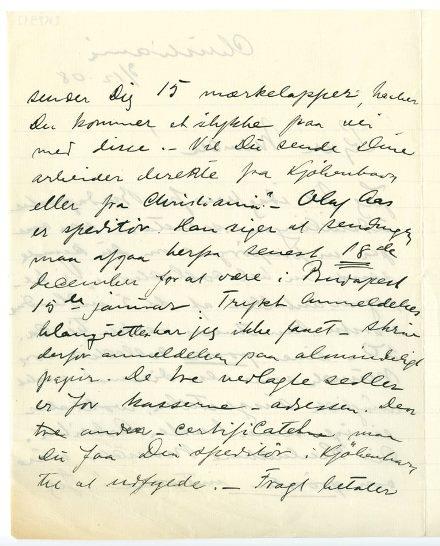 sender Dig 15 mærkelapper, haaber
Du kommer et stykke paa vei
med disse. – Vil Du sende Dine
arbeider direkte fra Kjöbenhavn
eller fra Christiania – Olaf Aas
er speditör Han siger at sendingen
maa afgaa herfra senest 18de
december for at være i Budapest
15de januar. Trykt Anmeldelses
blanquetter har jeg ikke faaet – skriv
derfor anmeldelsen paa almindeligt
papir. De tre vedlagte sedler
er for kasserne – adressen. Den
tre anden – certificatet maa
Du faa Din speditör i Kjöbenhavn
til at udfylde. – Fragt betaler